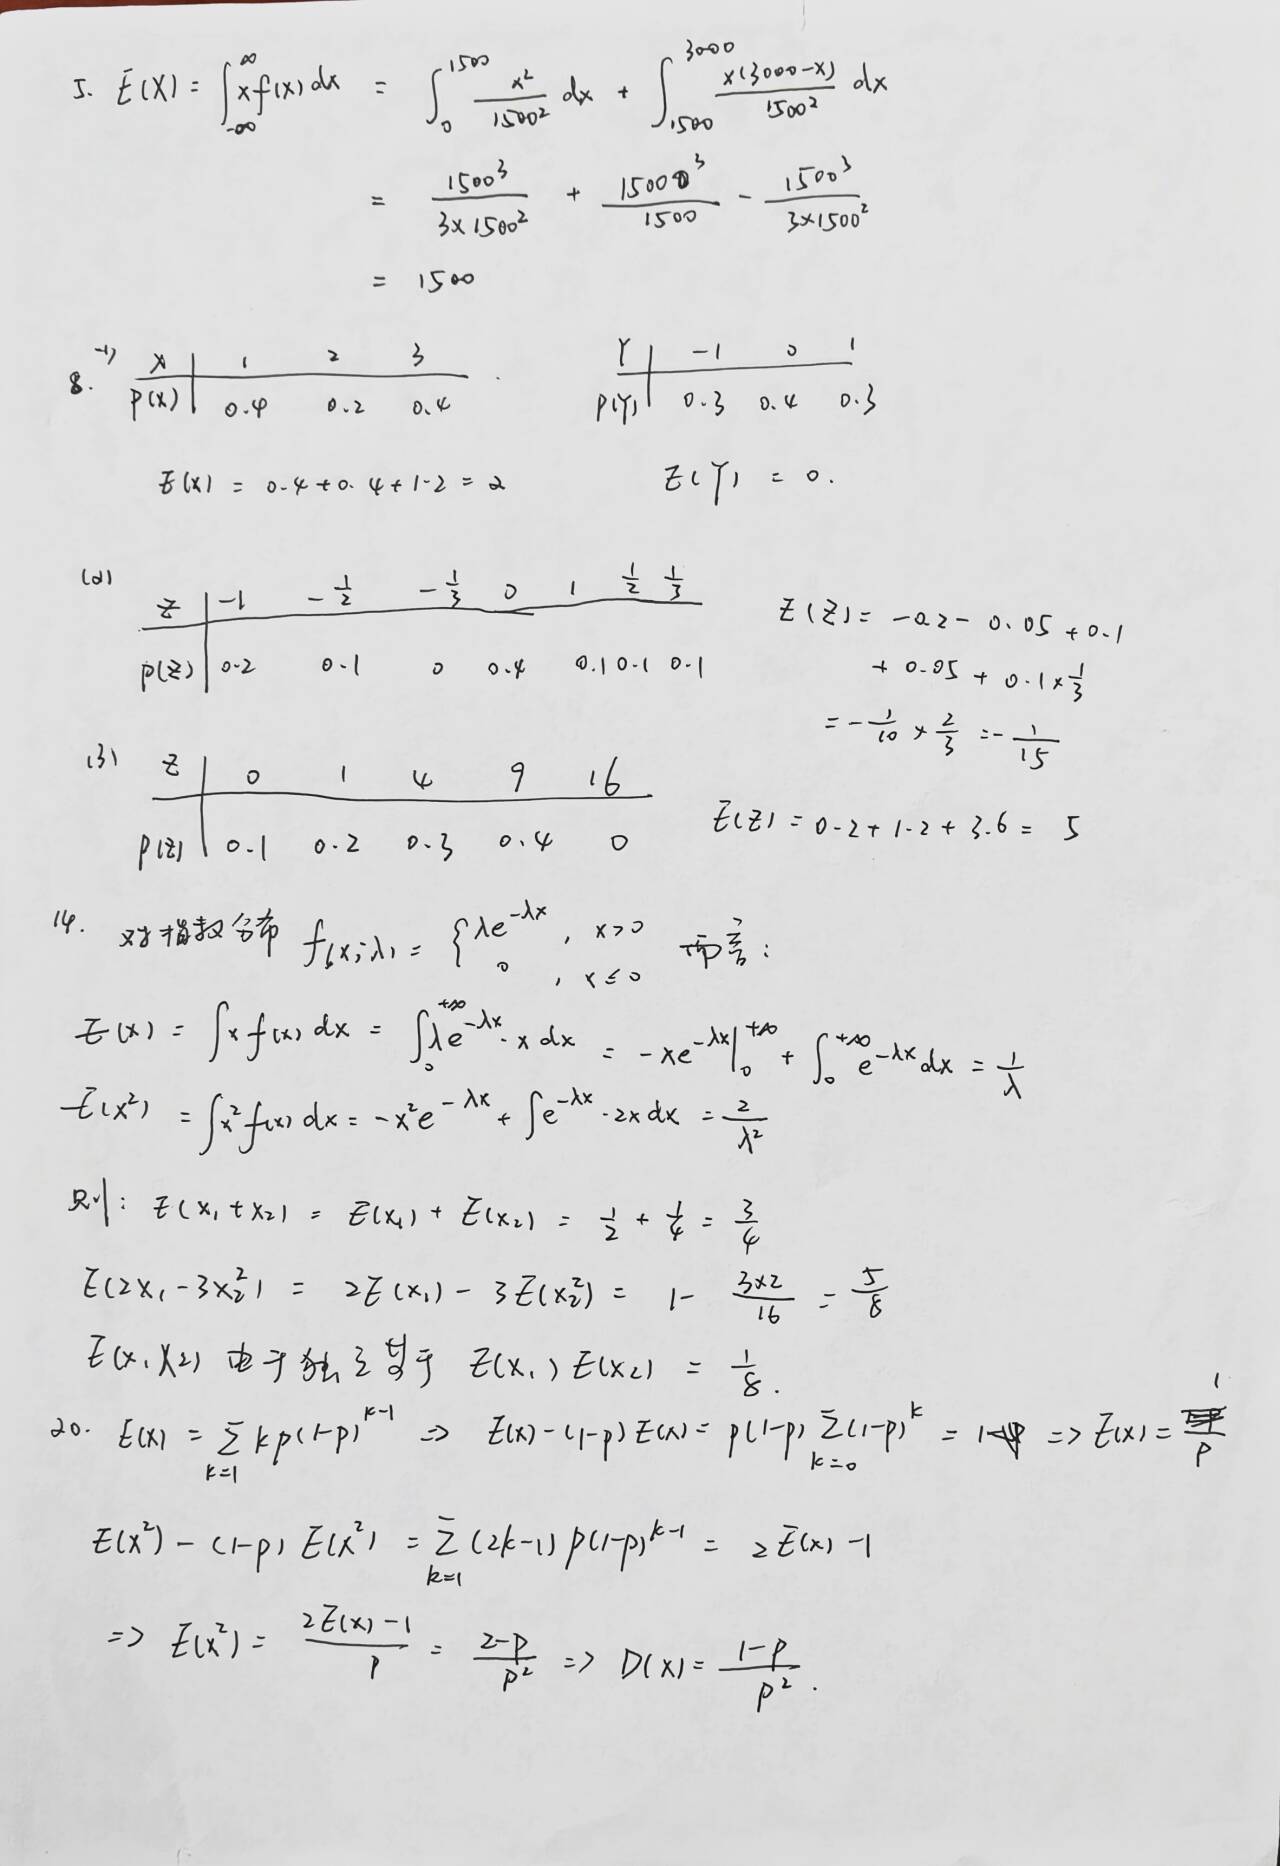 5. E(X) = ∫_{-∞}^{∞} x f(x) dx = ∫_0^{1500} x²/1500² dx + ∫_{1500}^{3000} x(3000-x)/1500² dx
= 1500³/(3×1500²) + 15000³/1500 - 1500³/(3×1500²)
= 1500
8. (1) X | 1 2 3    Y | -1 0 1
P(X) | 0.4 0.2 0.4    P(Y) | 0.3 0.4 0.3
E(X) = 0.4+0.4+1.2 = 2    E(Y) = 0.
(2) Z | -1 -1/2 -1/3 0 1 1/2 1/3    E(Z) = -0.2 - 0.05 + 0.1
P(Z) | 0.2 0.1 0 0.4 0.1 0.1 0.1    + 0.05 + 0.1×1/3
= -1/10 × 2/3 = -1/15
(3) Z | 0 1 4 9 16
P(Z) | 0.1 0.2 0.3 0.4 0    E(Z) = 0.2+1.2+3.6 = 5
14. 对指数分布 f(x;λ) = { λe^{-λx}, x>0
0, x≤0 而言:
E(x) = ∫x f(x) dx = ∫_0^{+∞} λe^{-λx}·x dx = -xe^{-λx}|_0^{+∞} + ∫_0^{+∞} e^{-λx} dx = 1/λ
E(x²) = ∫x² f(x) dx = -x²e^{-λx} + ∫e^{-λx}·2x dx = 2/λ²
则: E(x₁+x₂) = E(x₁) + E(x₂) = 1/2 + 1/4 = 3/4
E(2x₁-3x₂²) = 2E(x₁) - 3E(x₂²) = 1 - 3×2/16 = 5/8
E(x₁x₂) 由于独立等于 E(x₁)E(x₂) = 1/8.
20. E(x) = Σ_{k=1} kp(1-p)^{k-1} => E(x)-(1-p)E(x) = p(1-p) Σ_{k=0} (1-p)^k = 1 => E(x) = 1/p
E(x²) - (1-p) E(x²) = Σ_{k=1} (2k-1) p(1-p)^{k-1} = 2E(x) - 1
=> E(x²) = (2E(x)-1)/p = (2-p)/p² => D(X) = (1-p)/p².